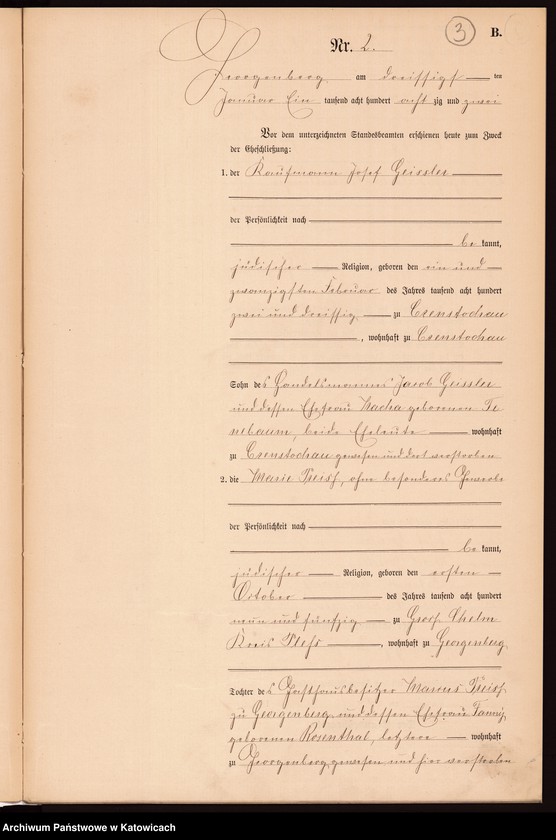 3
B.
Nr. 2.
Georgenberg am dreissigsten
Januar Ein tausend acht hundert achtzig und zwei
Vor dem unterzeichneten Standesbeamten erschienen heute zum Zweck
der Eheschließung:
1. der Kaufmann Josef Geissler
der Persönlichkeit nach
bekannt,
jüdischer Religion, geboren den ein und
zwanzigsten Februar des Jahres tausend acht hundert
zwei und dreissig zu Czenstochau
, wohnhaft zu Czenstochau
Sohn des Handelsmannes Jacob Geissler
und dessen Ehefrau Nacha geborenen
beide Eheleute wohnhaft
zu Czenstochau gewesen und dort verstorben
2. die Marie, ohne besonderes Gewerbe
der Persönlichkeit nach
bekannt,
jüdischer Religion, geboren den ersten
October des Jahres tausend acht hundert
neun und fünfzig zu Gross Chelm
Kreis Pless, wohnhaft zu Georgenberg
Tochter des Gasthausbesitzer Marcus
zu Georgenberg und dessen Ehefrau
geborenen Rosenthal, letztere wohnhaft
zu Georgenberg gewesen und hier verstorben
Archiwum Państwowe w Katowicach